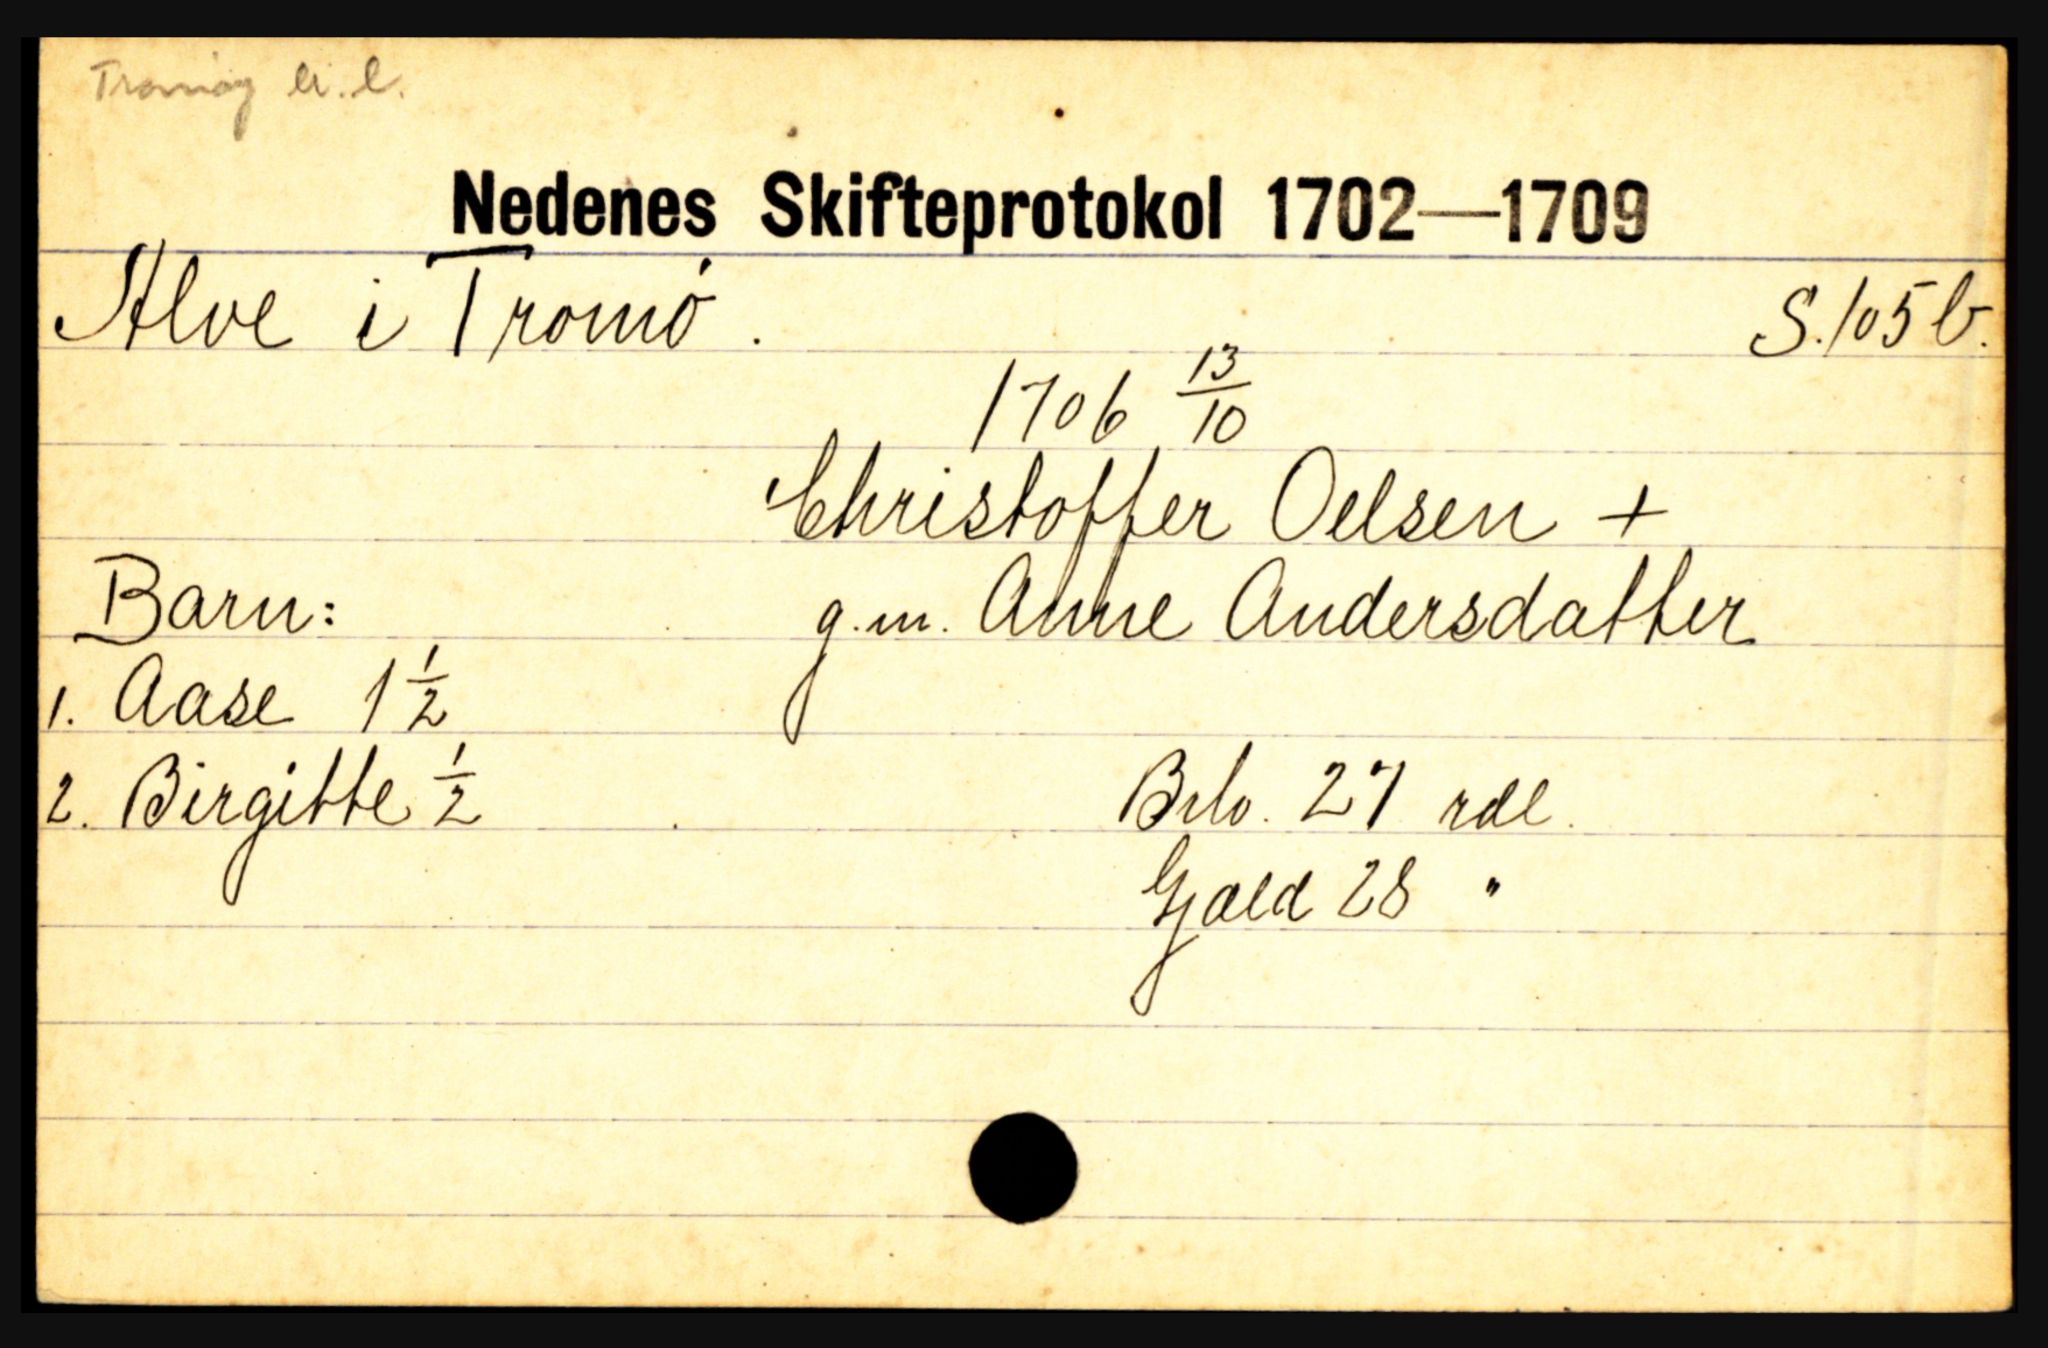 Tromøy
Nedenes Skifteprotokol 1702—1709
Alve i Tromø. S. 105 b.
1706 13/10
Christoffer Oelsen +
Barn: g.m. Anne Andersdatter
1. Aase 1 1/2
2. Birgitte 1/2 Brto. 27 rdl.
Gjæld 28 "